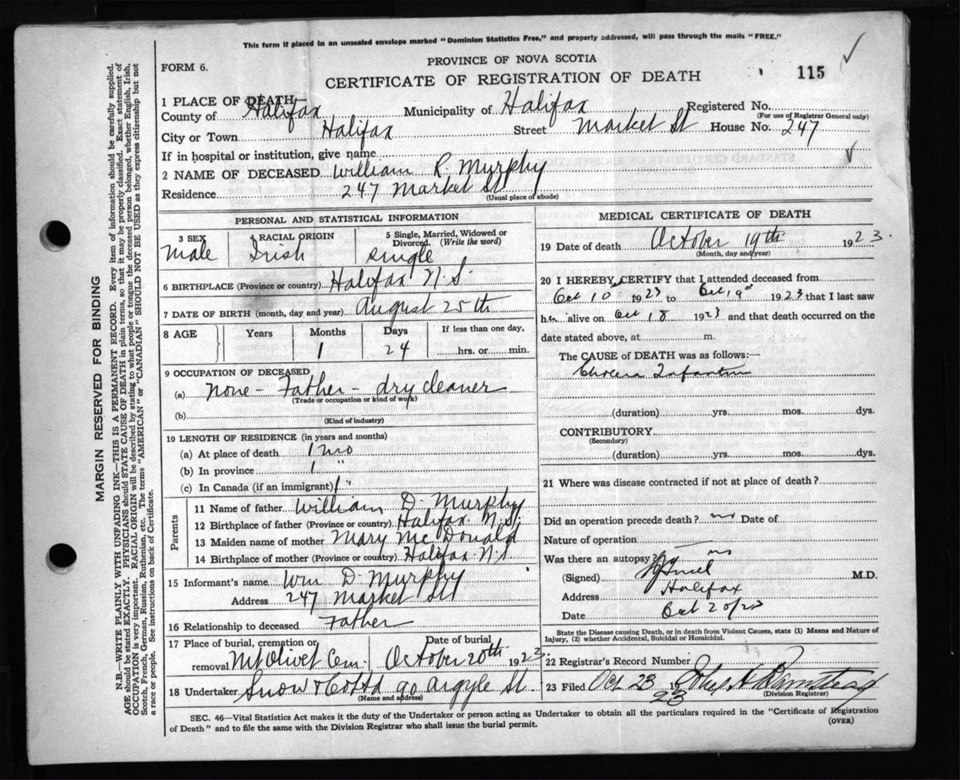 This form if placed in an unsealed envelope marked "Dominion Statistics Free," and properly addressed, will pass through the mails "FREE."
PROVINCE OF NOVA SCOTIA
FORM 6.
CERTIFICATE OF REGISTRATION OF DEATH
115
1 PLACE OF DEATH
County of Halifax Municipality of Halifax Registered No.
(For use of Registrar General only)
City or Town Halifax Street Market St House No. 247
If in hospital or institution, give name
2 NAME OF DECEASED William R. Murphy
Residence 247 Market St
(Usual place of abode)
PERSONAL AND STATISTICAL INFORMATION
3 SEX 4 RACIAL ORIGIN 5 Single, Married, Widowed or Divorced. (Write the word)
Male Irish Single
6 BIRTHPLACE (Province or country) Halifax N.S.
7 DATE OF BIRTH (month, day and year) August 25th
8 AGE Years Months Days If less than one day,
1 24 hrs. or min.
9 OCCUPATION OF DECEASED
(a) None - Father - dry cleaner
(Trade or occupation or kind of work)
(b)
(Kind of industry)
10 LENGTH OF RESIDENCE (in years and months)
(a) At place of death 1 mo
(b) In province 1 "
(c) In Canada (if an immigrant) 1 "
Parents
11 Name of father William D. Murphy
12 Birthplace of father (Province or country) Halifax N.S.
13 Maiden name of mother Mary McDonald
14 Birthplace of mother (Province or country) Halifax N.S.
15 Informant's name Wm D. Murphy
Address 247 Market St
16 Relationship to deceased Father
17 Place of burial, cremation or removal Mt Olivet Cem. Date of burial October 20th 1923.
18 Undertaker Snow & Co Ltd 90 Argyle St.
(Name and address)
MEDICAL CERTIFICATE OF DEATH
19 Date of death October 19th 1923.
(Month, day and year)
20 I HEREBY CERTIFY that I attended deceased from
Oct 10 1923 to Oct 19 1923 that I last saw
h alive on Oct 18 1923 and that death occurred on the
date stated above, at m.
The CAUSE of DEATH was as follows:—
Cholera Infantum
(duration) yrs. mos. dys.
CONTRIBUTORY
(Secondary)
(duration) yrs. mos. dys.
21 Where was disease contracted if not at place of death?
Did an operation precede death? no Date of
Nature of operation
Was there an autopsy? no
(Signed) M.D.
Address Halifax
Date Oct 20/23
State the Disease causing Death, or in death from Violent Causes, state (1) Means and Nature of Injury, (2) whether Accidental, Suicidal or Homicidal.
22 Registrar's Record Number
23 Filed Oct 23 23
(Division Registrar)
SEC. 46—Vital Statistics Act makes it the duty of the Undertaker or person acting as Undertaker to obtain all the particulars required in the "Certificate of Registration
of Death" and to file the same with the Division Registrar who shall issue the burial permit.
(OVER)
MARGIN RESERVED FOR BINDING
N.B.—WRITE PLAINLY WITH UNFADING INK—THIS IS A PERMANENT RECORD. Every item of information should be carefully supplied.
AGE should be stated EXACTLY. PHYSICIANS should STATE CAUSE OF DEATH in plain terms, so that it may be properly classified. Exact statement of
OCCUPATION is very important. RACIAL ORIGIN will be described by stating to what people or tongue the deceased person belonged, whether English, Irish,
Scotch, French, German, Russian, Ruthenian, etc. The terms "AMERICAN" or "CANADIAN" SHOULD NOT BE USED as they express citizenship but not
a race or people. See instructions on back of Certificate.